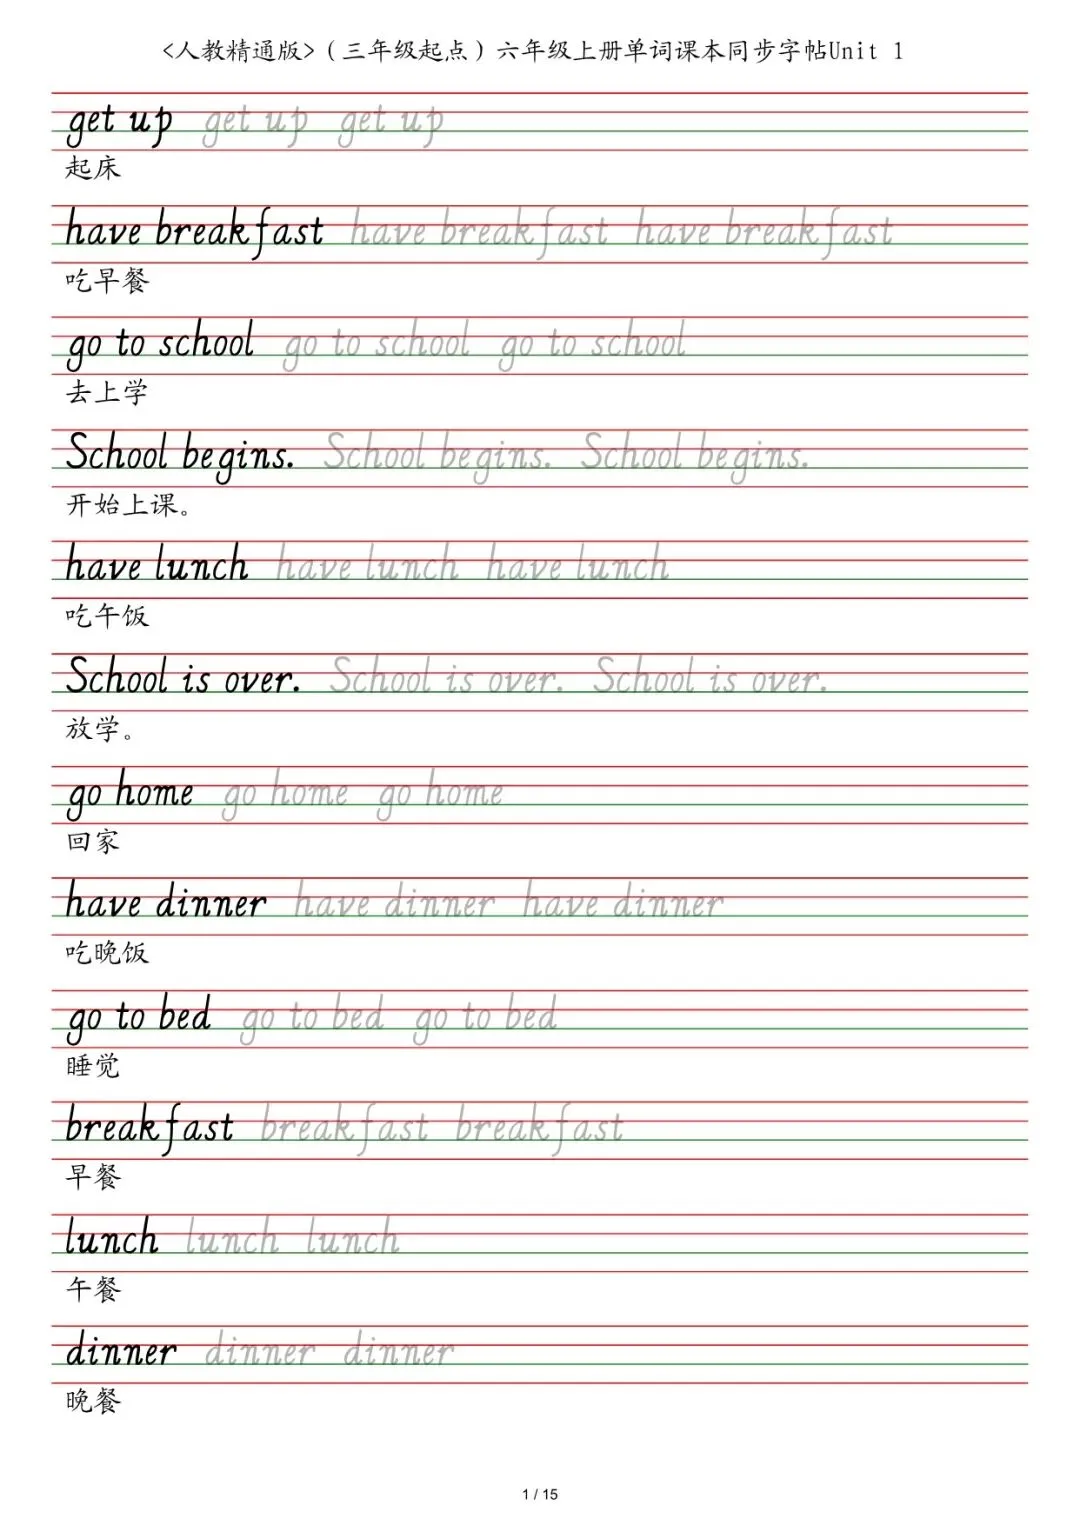 <人教精通版>(三年级起点)六年级上册单词课本同步字帖Unit 1
get up get up get up
起床
have breakfast have breakfast have breakfast
吃早餐
go to school go to school go to school
去上学
School begins. School begins. School begins.
开始上课。
have lunch have lunch have lunch
吃午饭
School is over. School is over. School is over.
放学。
go home go home go home
回家
have dinner have dinner have dinner
吃晚饭
go to bed go to bed go to bed
睡觉
breakfast breakfast breakfast
早餐
lunch lunch lunch
午餐
dinner dinner dinner
晚餐
1 / 15